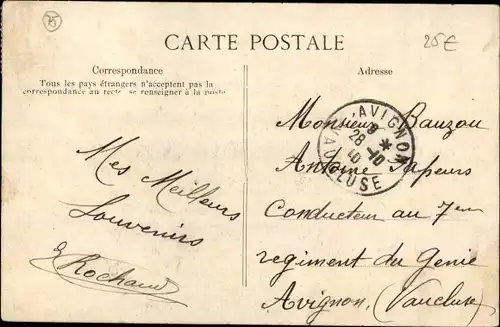 25
25€
CARTE POSTALE
Correspondance
Tous les pays étrangers n'acceptent pas la
correspondance au recto, se renseigner à la poste
Mes Meilleurs
Souvenirs
Rochaud
Adresse
AVIGNON
28 10
VAUCLUSE
Monsieur Bauzou
Antoine Sapeurs
Conducteur au 7em
regiment du Genie
Avignon, (Vaucluse)